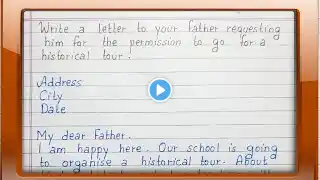 Write a letter to your father requesting
him for the permission to go for a
historical tour.
Address
City
Date
My dear Father.
I am happy here. Our school is going
to organise a historical tour. About